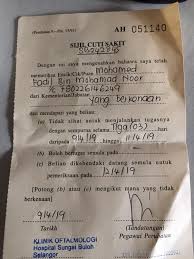 AH 051140
SIJIL CUTI SAKIT
Dengan ini saya mengesahkan bahawa saya telah
memeriksa Encik/Cik/Puan Mohamed
Fadil Bin Mohamad Noor
dari Kementerian/Jabatan
yang berkenaan
(a) Tidak sihat untuk menjalankan tugasnya
dengan sempurna selama Tiga (03) hari
daripada 9/4/19 hingga 11/4/19
(b) Boleh bertugas semula pada
(c) Beliau dikehendaki datang semula untuk
pemeriksaan pada 12/4/19
(Potong (a) atau (c) mengikut mana yang tidak
berkenaan)
9/4/19
Tarikh
(Tandatangan)
Pegawai Perubatan
KLINIK OFTALMOLOGI
Hospital Sungai Buloh
Selangor